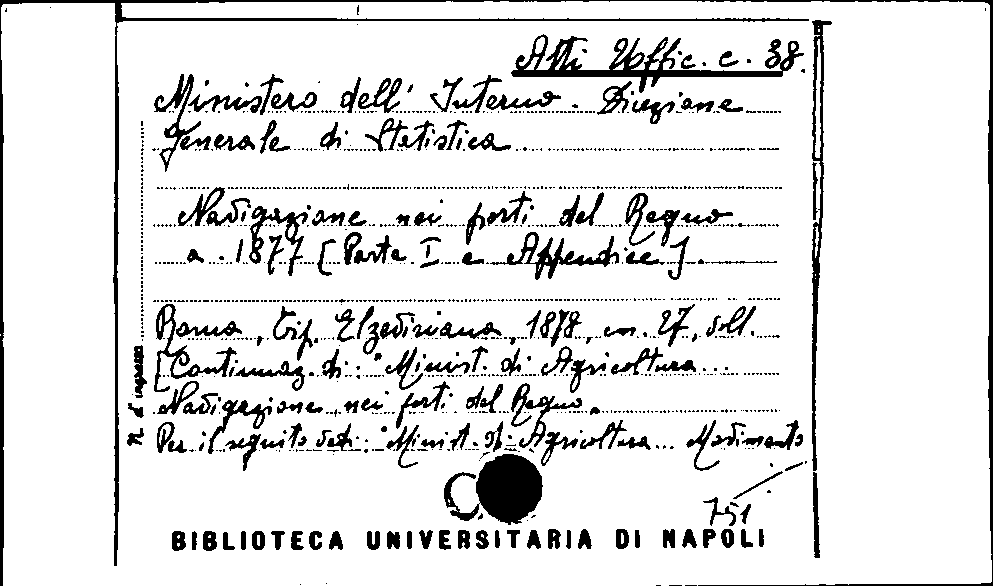 Atti Uffic. c. 38.
Ministero dell' Interno. Direzione
Generale di Statistica
Navigazione nei porti del Regno.
a. 1877 [Parte I e Appendice].
Roma, Tip. Elzeviriana, 1878, cm. 27, voll.
[Continuaz. di: "Minist. di Agricoltura...
Navigazione nei porti del Regno.
Per il seguito vedi: "Minist. di Agricoltura... Movimento
N. d'ingresso
751
BIBLIOTECA UNIVERSITARIA DI NAPOLI